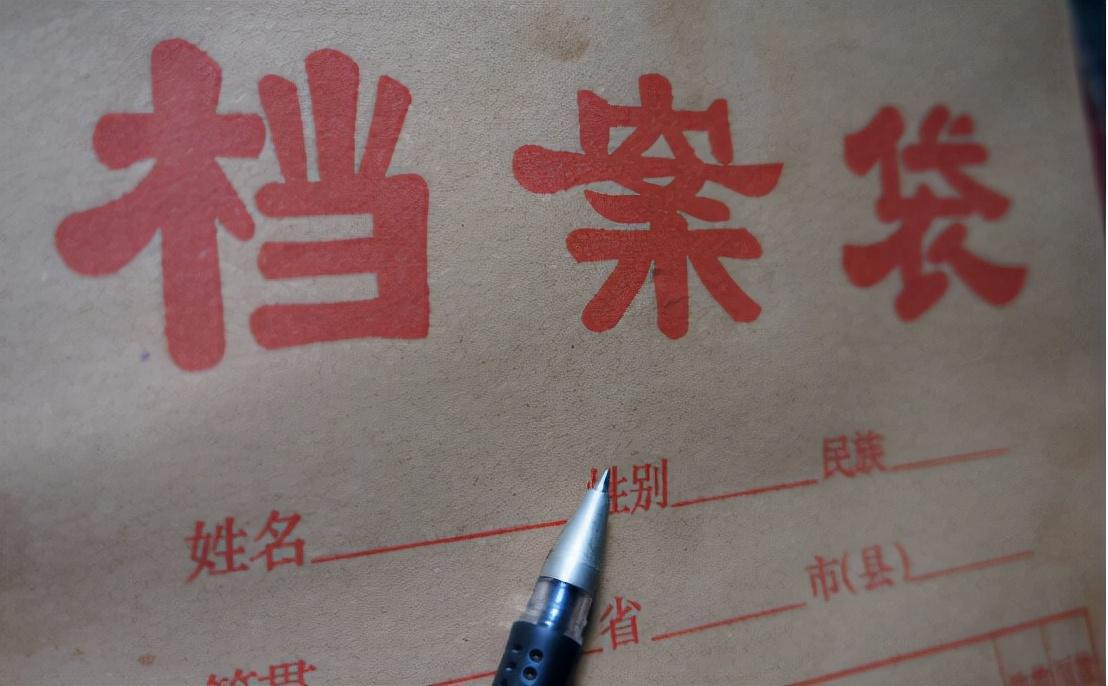 档案袋
姓名 性别 民族
籍贯 省 市(县)